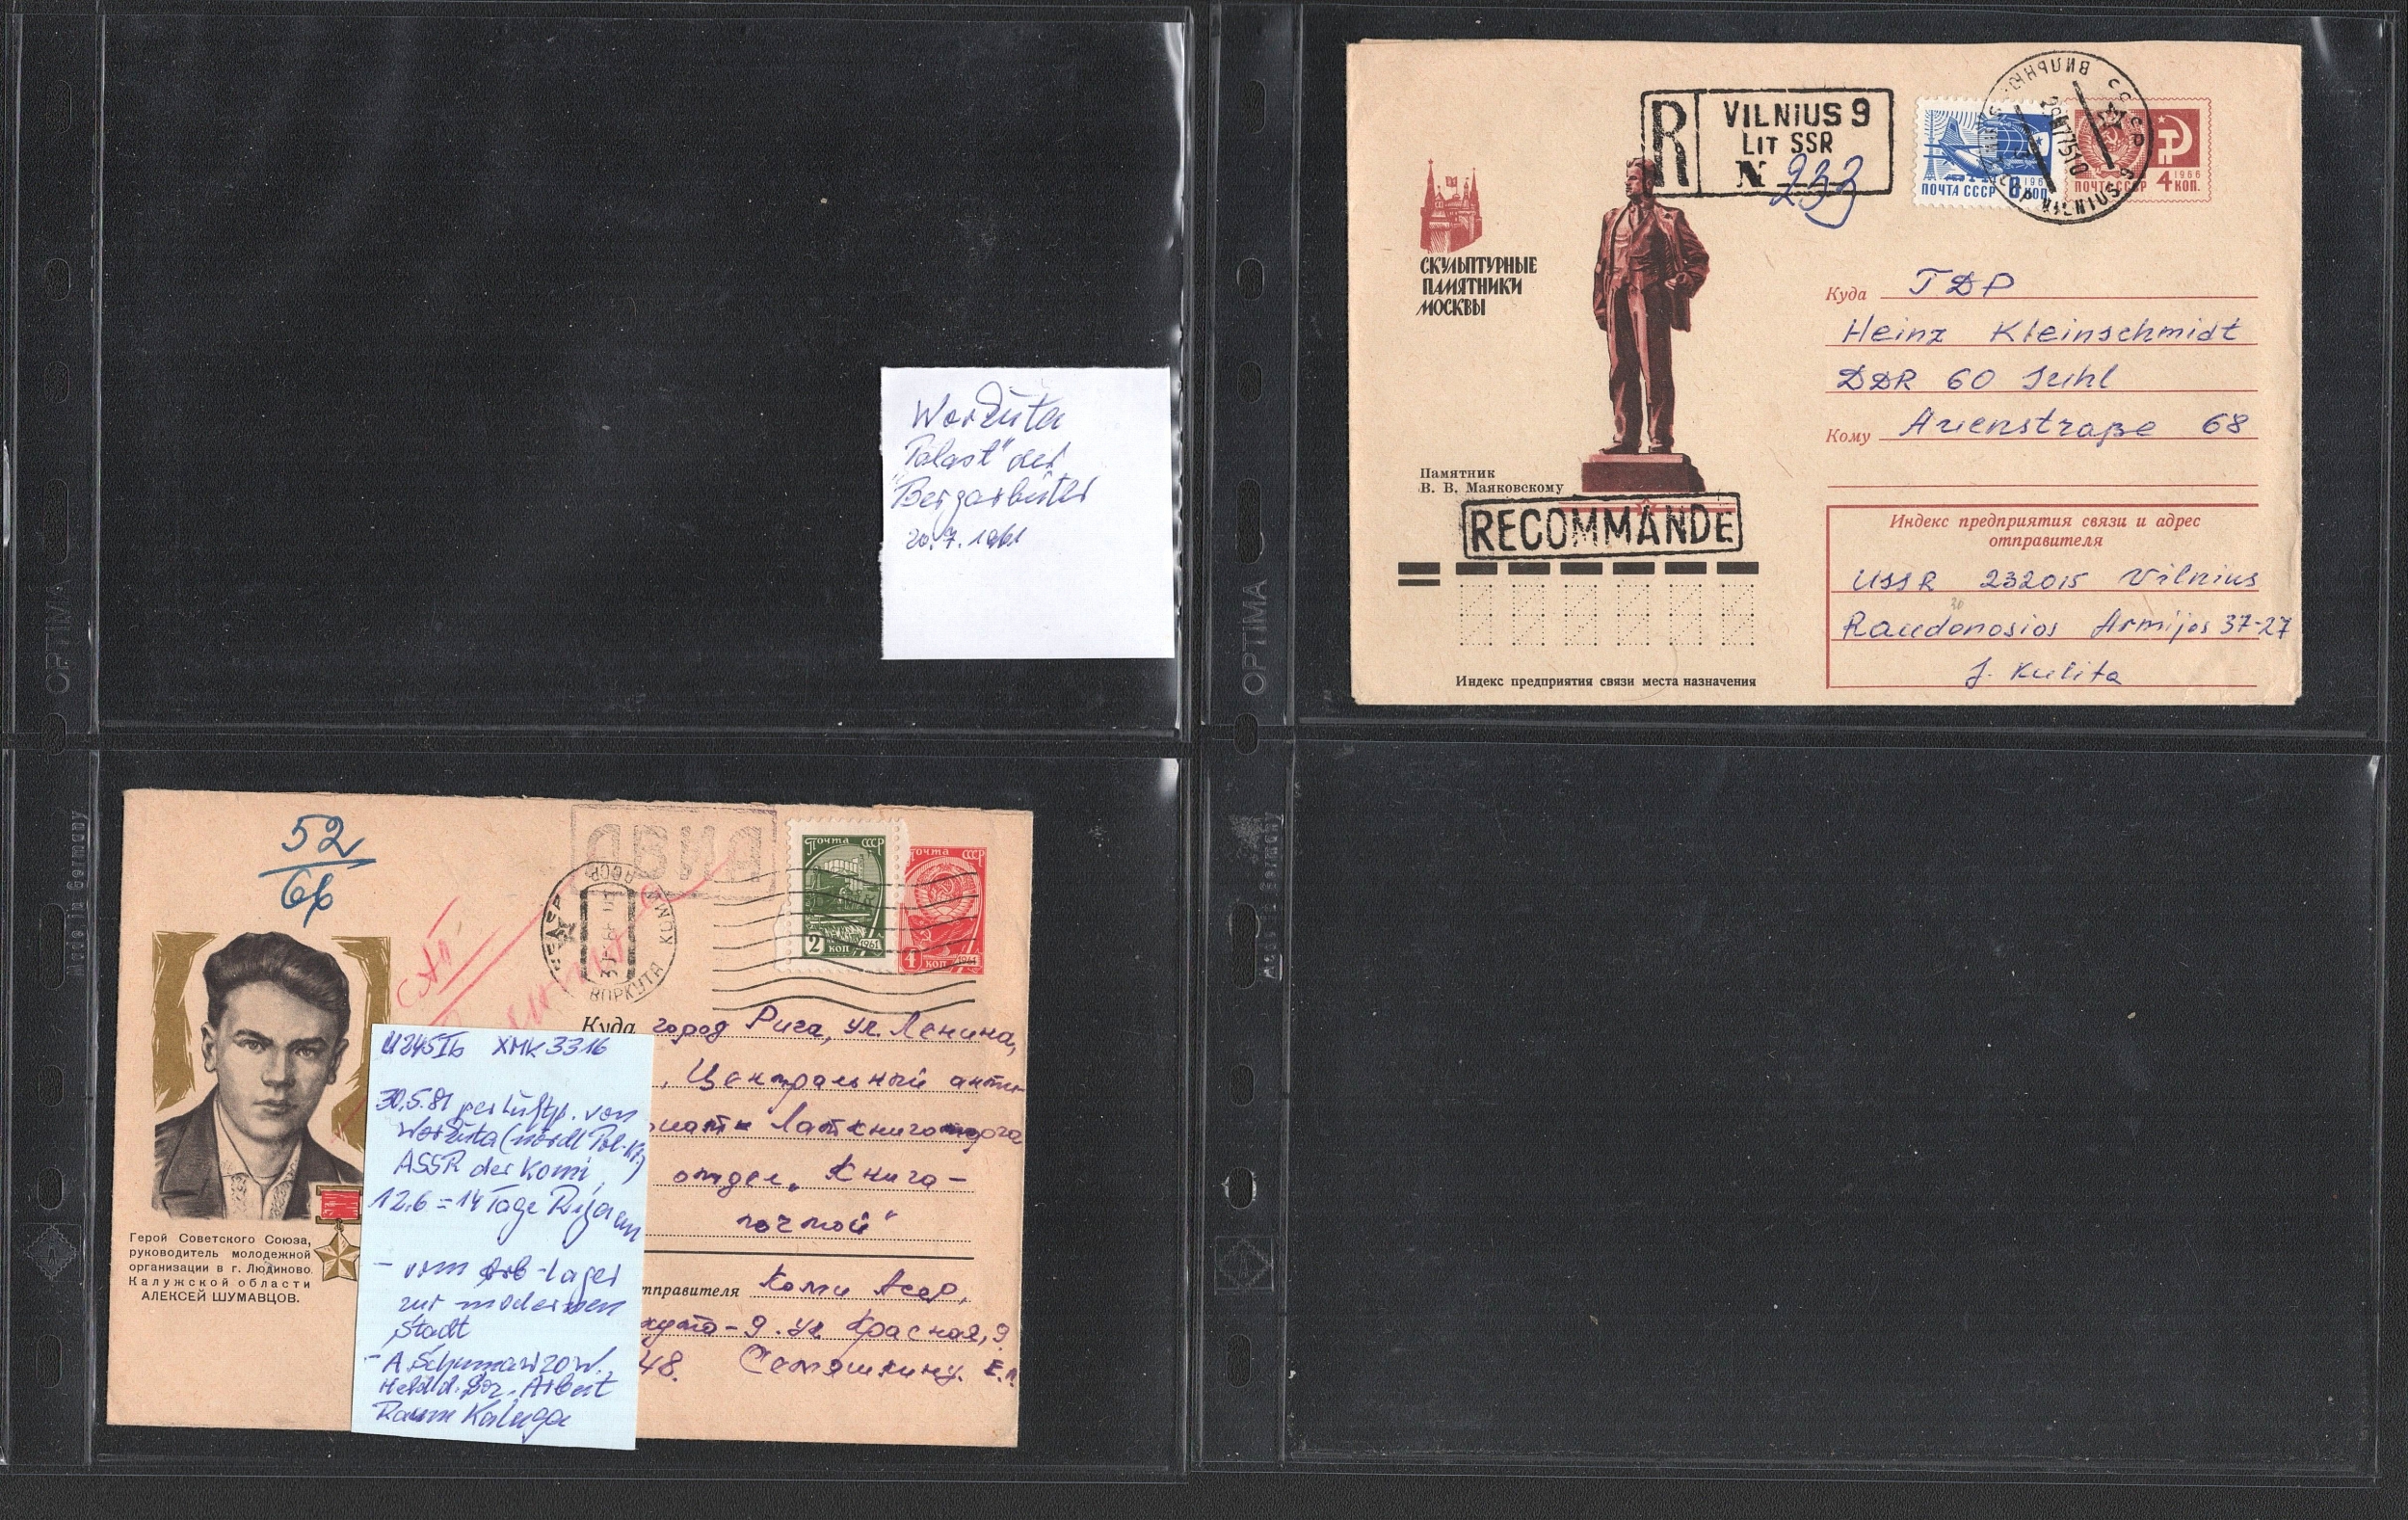 Workuta
"Palast" der
Bergarbeiter
20.7.1961
OPTIMA
R
VILNIUS 9
LIT SSR
N 233
ПОЧТА СССР 8 КОП. 1966
ПОЧТА СССР 4 КОП. 1966
СКУЛЬПТУРНЫЕ
ПАМЯТНИКИ
МОСКВЫ
Памятник
В. В. Маяковскому
RECOMMANDE
Куда ГДР
Heinz Kleinschmidt
DDR 60 Suhl
Кому Auenstraße 68
Индекс предприятия связи и адрес
отправителя
USSR 232015 Vilnius
30
Raudonosios Armijos 37-27
J. Kulita
Индекс предприятия связи места назначения
OPTIMA
Made in Germany
Made in Germany
52
66
АВИА
ВОРКУТА КОМИ АССР
ПОЧТА СССР
2 КОП 1961
ПОЧТА СССР
4 КОП 1961
Куда город Рига, ул. Ленина,
, Центральный анти-
отдел „Книга-
почтой"
отправителя Коми Асср,
-9. ул Красная, 9
48. Семяшкину. Е.
Герой Советского Союза,
руководитель молодежной
организации в г. Людиново
Калужской области
АЛЕКСЕЙ ШУМАВЦОВ.
U245Ib XMK 3316
30.5.81 per Luftp. von
Workuta (nördl Pol-Kr.)
ASSR der Komi,
12.6 = 14 Tage Riga an
- vom Arb-lager
zur modernen
Stadt
- A. Schumawzow,
Held d. Soz. Arbeit
Raum Kaluga